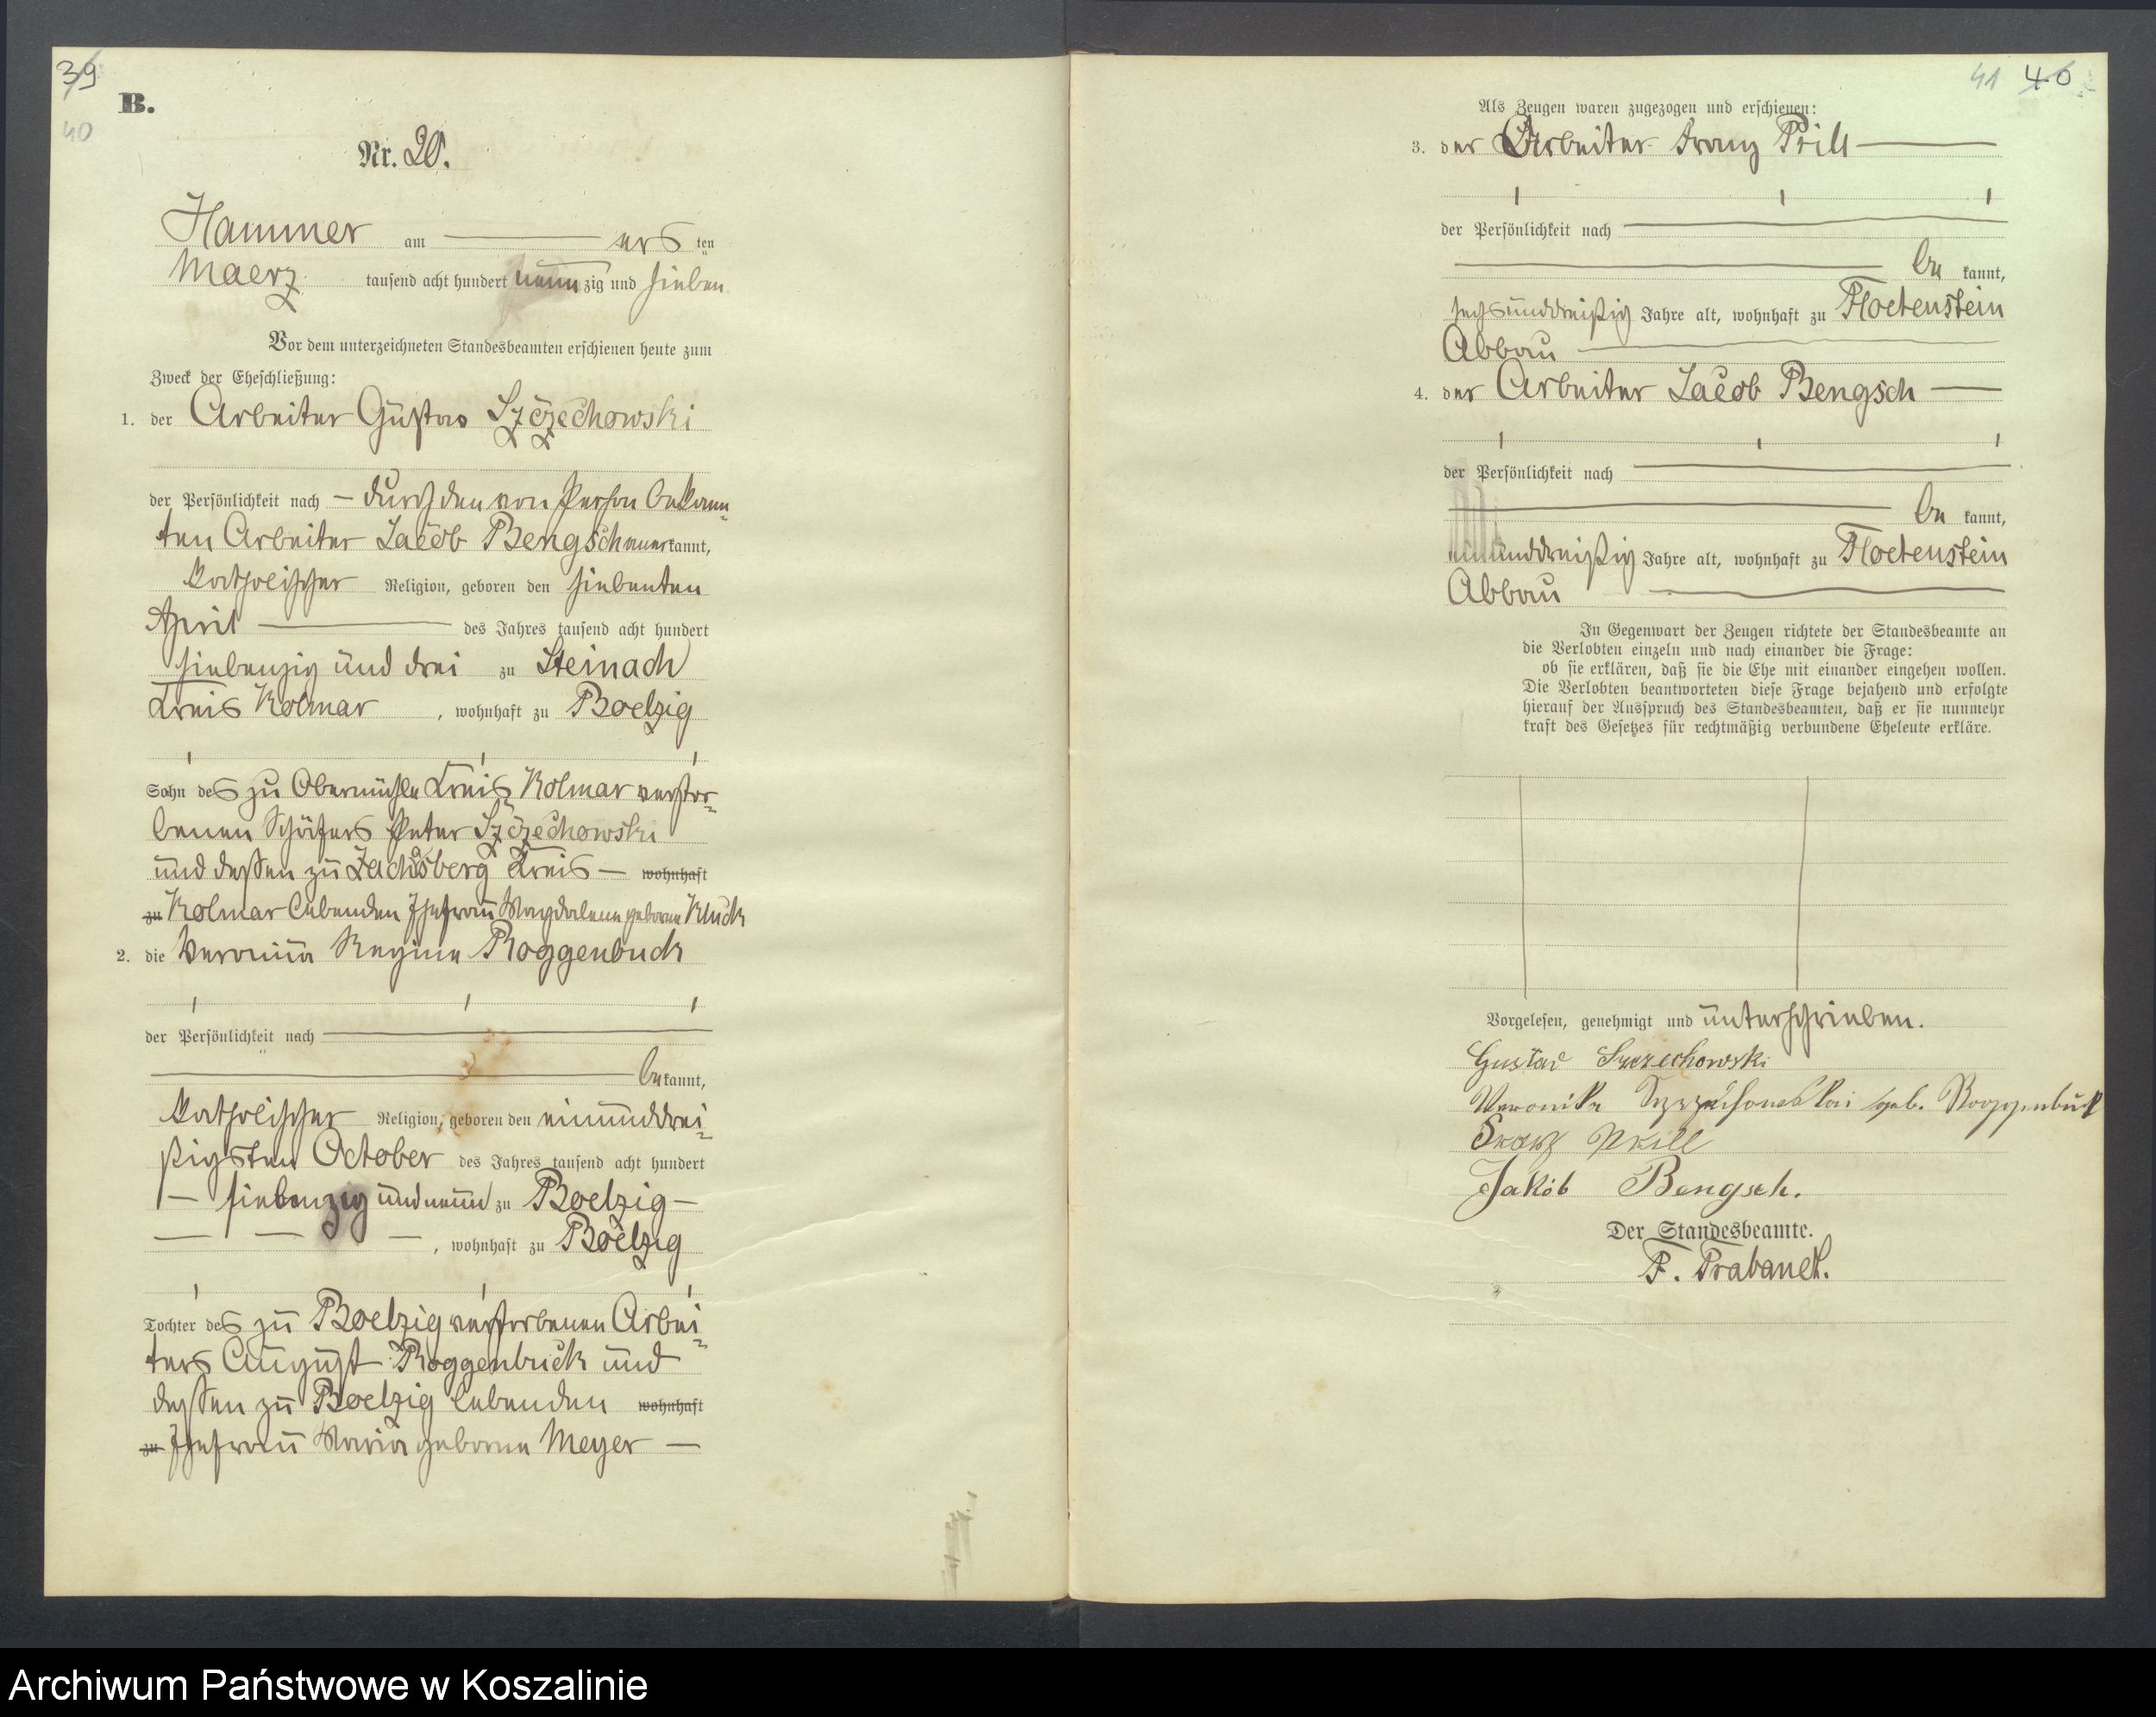 39
40
B.
Nr. 20.
Hammer am ersten
Maerz tausend acht hundert neunzig und sieben
Vor dem unterzeichneten Standesbeamten erschienen heute zum
Zweck der Eheschließung:
1. der Arbeiter Gustav Szczechowski
der Persönlichkeit nach — durch den von Person bekann-
ten Arbeiter Jacob Bengsch anerkannt,
katholischer Religion, geboren den siebenten
April des Jahres tausend acht hundert
siebenzig und drei zu Steinach
Kreis Kolmar, wohnhaft zu Boelzig
Sohn des zu Obermühle Kreis Kolmar verstor-
benen Schäfers Peter Szczechowski
und dessen zu Zachasberg Kreis — wohnhaft
zu Kolmar lebenden Ehefrau Magdalena geborene Kluck
2. die Veronika Regina Roggenbuck
der Persönlichkeit nach
bekannt,
katholischer Religion, geboren den einunddrei-
ßigsten October des Jahres tausend acht hundert
— siebenzig und neun zu Boelzig —
— — —, wohnhaft zu Boelzig
Tochter des zu Boelzig verstorbenen Arbei-
ters August Roggenbuck und
dessen zu Boelzig lebenden wohnhaft
zu Ehefrau Maria geborene Meyer —
41 40
Als Zeugen waren zugezogen und erschienen:
3. der Arbeiter Franz Prill
der Persönlichkeit nach
bekannt,
sechsunddreißig Jahre alt, wohnhaft zu Floetenstein
Abbau
4. der Arbeiter Jacob Bengsch
der Persönlichkeit nach
bekannt,
einunddreißig Jahre alt, wohnhaft zu Floetenstein
Abbau
In Gegenwart der Zeugen richtete der Standesbeamte an
die Verlobten einzeln und nach einander die Frage:
ob sie erklären, daß sie die Ehe mit einander eingehen wollen.
Die Verlobten beantworteten diese Frage bejahend und erfolgte
hierauf der Ausspruch des Standesbeamten, daß er sie nunmehr
kraft des Gesetzes für rechtmäßig verbundene Eheleute erkläre.
Vorgelesen, genehmigt und unterschrieben.
Gustav Szczechowski
Weronika geb. Roggenbuck
Franz Prill
Jakob Bengsch.
Der Standesbeamte.
F. Prabanet.
Archiwum Państwowe w Koszalinie